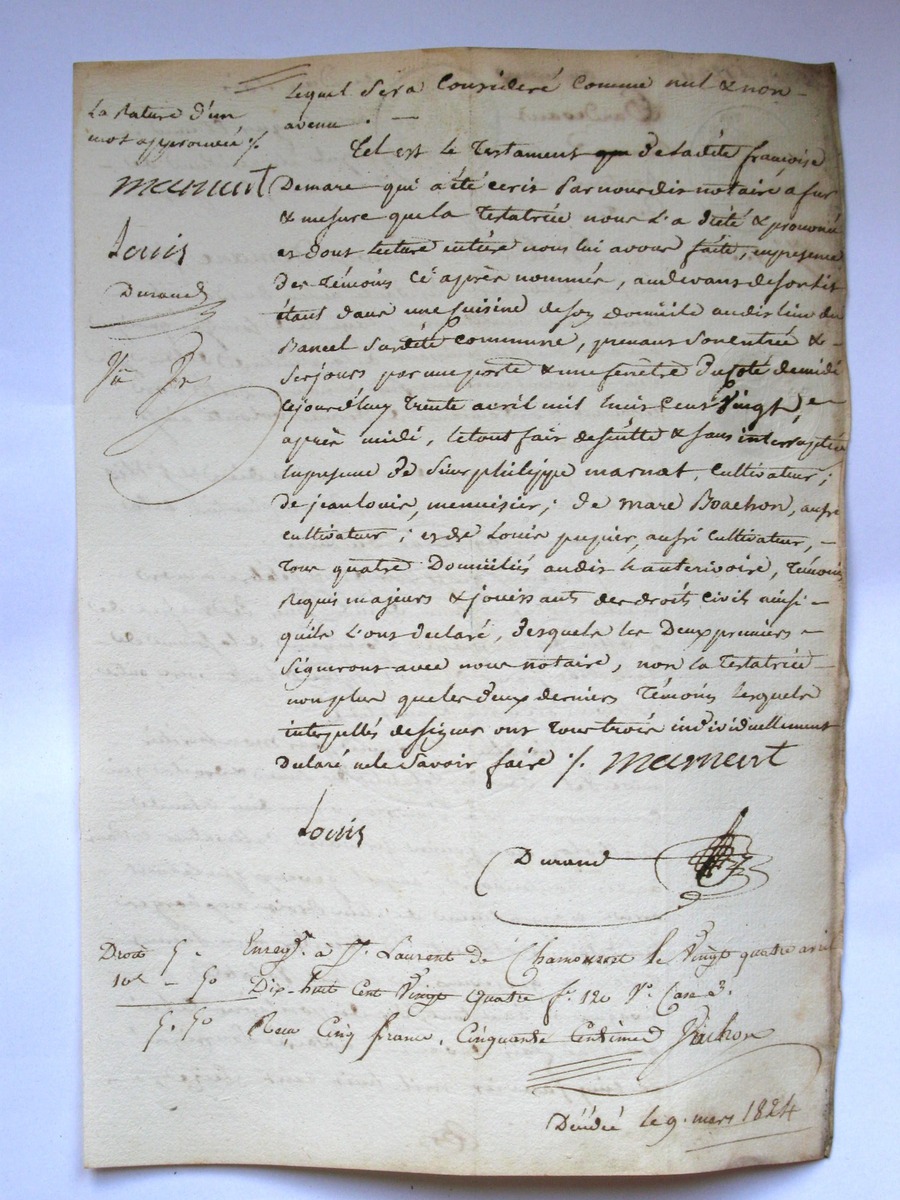 La Rature d'un
mot approuvée ·/.
marnat
Louis
Durand
lequel sera Consideré Comme nul & non -
avenu . -
Tel est le Testament que de ladite françoise
Demare qui a été ecrit Par nous dit notaire a fur
& mesure que la Testatrice nous l'a dicté & prononcé
et dont lecture entiere nous lui avons faite, en presence
des témoins Ci après nommés, au devant de son lit
étant dans une Cuisine de son domicile audit lieu du
Bancel Sardite Commune, prenant son entrée & -
ses jours par une porte & une fenêtre du coté de midi
Cejourd'huy trente avril mil huit cent vingt, -
après midi, le tout fait de suitte & sans interruption
En presence de Sieur philippe marnat, Cultivateur;
de jean Louis, menuisier; de Marc Boachon, aussi
cultivateur; et de Louis pupier, aussi Cultivateur, -
Tous quatre Domiciliés audit hauterivoire, témoins
Requis majeurs & jouissants des droits Civil ainsi -
qu'ils l'ont declaré, desquels les Deux premiers -
Signeront avec nous notaire, non la Testatrice -
non plus que les deux derniers Témoins lesquels
interpellés de signer ont tous trois individuellement
Declaré ne le savoir faire ·/. marnat
Louis
Durand
Droit 5 -
10e - 50
5. 50
Enregtré à St. Laurent de Chamousset le Vingt quatre avril
Dix-huit Cent Vingt Quatre f.° 120 V.° Case 3.
Reçu Cinq francs, Cinquante Centimes
Décédée le 9. mars 1824